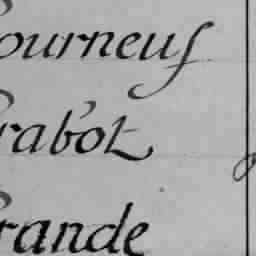 ourneuf
rabot
rande